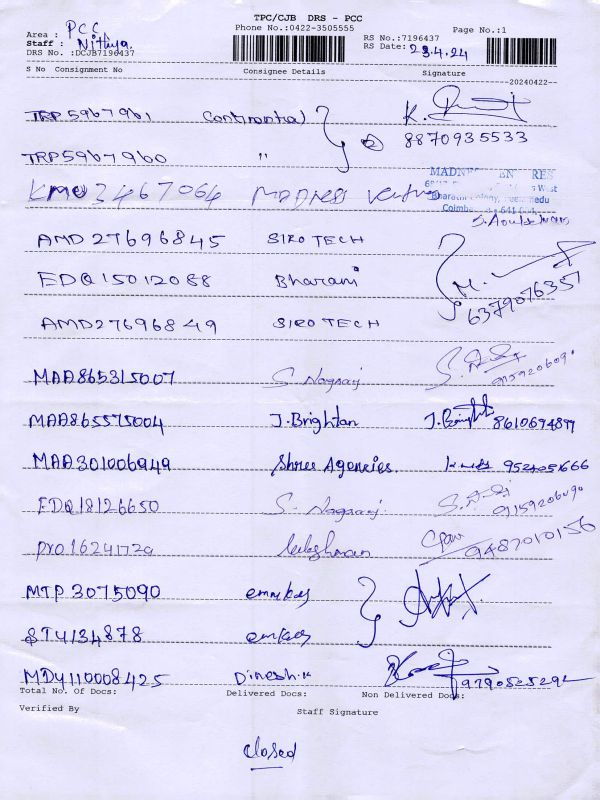 TPC/CJB DRS - PCC
Phone No.:0422-3505555
Area : PCC
Staff : Nithya.
DRS No. :DCJB7196437
RS No.:7196437
RS Date: 23.4.24
Page No.:1
S No Consignment No Consignee Details Signature
--20240422--
TRP5967961 Continental K.
8870935533
TRP5967960 "
KMU3467064 MADNESS
MADN EN RES
West
Bharathi Colony,
Coimb 641 004
AMD27696845 SIRO TECH
EDQ15012088 Bharani M.
6379076357
AMD27696849 SIRO TECH
MAA865315007 S. Nagaraj
9159206090
MAA865575004 J.Brighton J.Bright 8610694877
MAA301006949 Shree Agencies.
EDQ18126650 S. Nagaraj 9159206090
Lakshman 9487010156
MTP3075090 emkay
ST4134878 emkay
MDU110008425 Dinesh.K
Total No. Of Docs: Delivered Docs: Non Delivered Docs:
Verified By Staff Signature
closed